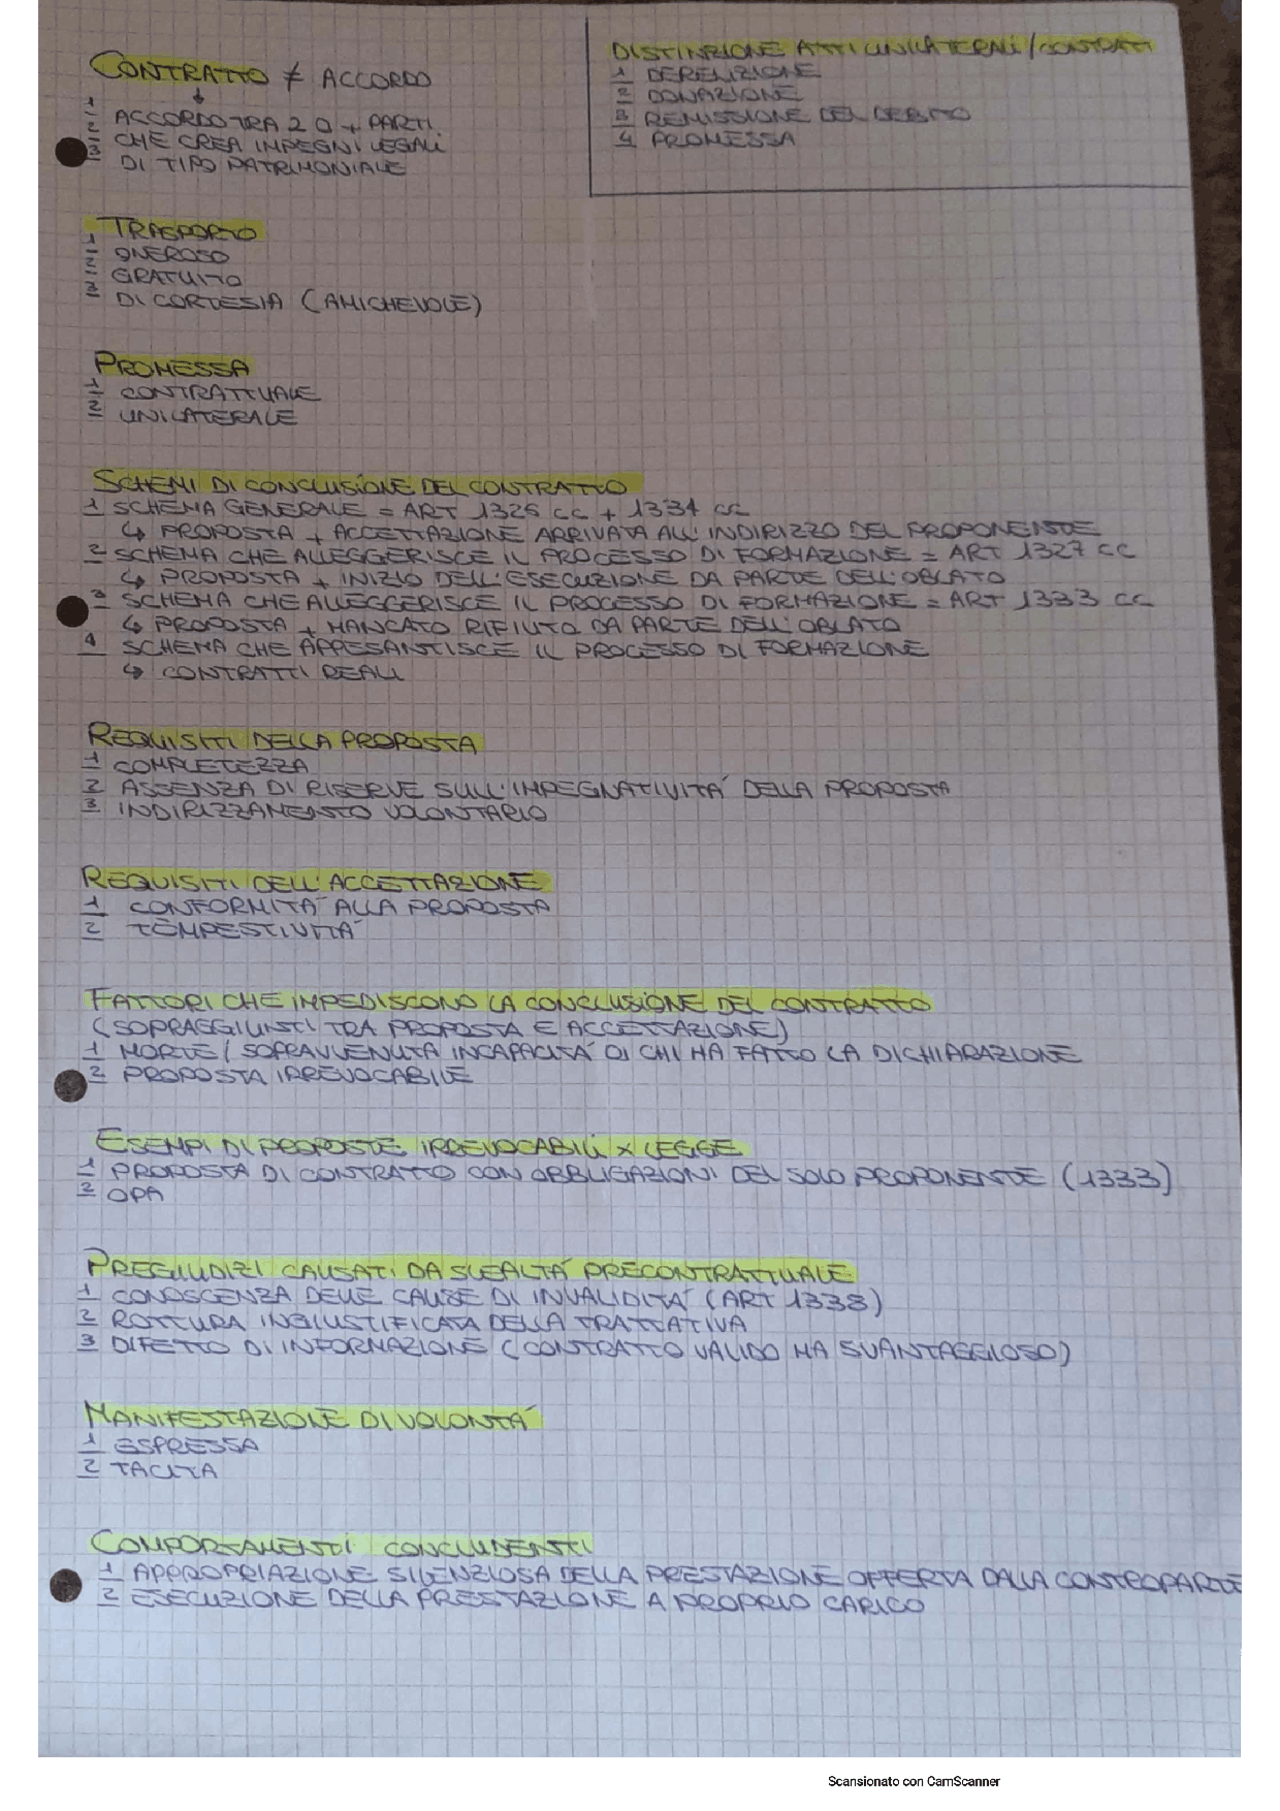 CONTRATTO ≠ ACCORDO
↓
1 ACCORDO TRA 2 O + PARTI
2 CHE CREA IMPEGNI LEGALI
3 DI TIPO PATRIMONIALE
DISTINZIONE ATTI UNILATERALI/CONTRATTI
1 DERELIZIONE
2 DONAZIONE
3 REMISSIONE DEL DEBITO
4 PROMESSA
TRASPORTO
1 ONEROSO
2 GRATUITO
3 DI CORTESIA (AMICHEVOLE)
PROMESSA
1 CONTRATTUALE
2 UNILATERALE
SCHEMI DI CONCLUSIONE DEL CONTRATTO
1 SCHEMA GENERALE = ART 1326 CC + 1334 CC
↳ PROPOSTA + ACCETTAZIONE ARRIVATA ALL'INDIRIZZO DEL PROPONENTE
2 SCHEMA CHE ALLEGGERISCE IL PROCESSO DI FORMAZIONE = ART 1327 CC
↳ PROPOSTA + INIZIO DELL'ESECUZIONE DA PARTE DELL'OBLATO
3 SCHEMA CHE ALLEGGERISCE IL PROCESSO DI FORMAZIONE = ART 1333 CC
↳ PROPOSTA + MANCATO RIFIUTO DA PARTE DELL'OBLATO
4 SCHEMA CHE APPESANTISCE IL PROCESSO DI FORMAZIONE
↳ CONTRATTI REALI
REQUISITI DELLA PROPOSTA
1 COMPLETEZZA
2 ASSENZA DI RISERVE SULL'IMPEGNATIVITÀ DELLA PROPOSTA
3 INDIRIZZAMENTO VOLONTARIO
REQUISITI DELL'ACCETTAZIONE
1 CONFORMITÀ ALLA PROPOSTA
2 TEMPESTIVITÀ
FATTORI CHE IMPEDISCONO LA CONCLUSIONE DEL CONTRATTO
(SOPRAGGIUNTI TRA PROPOSTA E ACCETTAZIONE)
1 MORTE / SOPRAVVENUTA INCAPACITÀ DI CHI HA FATTO LA DICHIARAZIONE
2 PROPOSTA IRREVOCABILE
ESEMPI DI PROPOSTE IRREVOCABILI X LEGGE
1 PROPOSTA DI CONTRATTO CON OBBLIGAZIONI DEL SOLO PROPONENTE (1333)
2 OPA
PREGIUDIZI CAUSATI DA SLEALTÀ PRECONTRATTUALE
1 CONOSCENZA DELLE CAUSE DI INVALIDITÀ (ART 1338)
2 ROTTURA INGIUSTIFICATA DELLA TRATTATIVA
3 DIFETTO DI INFORMAZIONE (CONTRATTO VALIDO MA SVANTAGGIOSO)
MANIFESTAZIONE DI VOLONTÀ
1 ESPRESSA
2 TACITA
COMPORTAMENTI CONCLUDENTI
1 APPROPRIAZIONE SILENZIOSA DELLA PRESTAZIONE OFFERTA DALLA CONTROPARTE
2 ESECUZIONE DELLA PRESTAZIONE A PROPRIO CARICO
Scansionato con CamScanner